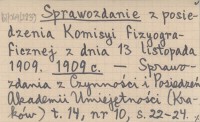 Sprawozdanie z posie-
dzenia Komisyi fizyogra-
ficznej z dnia 13 listopada
1909. 1909 r. — Sprawo-
zdania z Czynności i Posiedzeń
Akademii Umiejętności (Kra-
ków) t. 14, nr 10, s. 22-24.